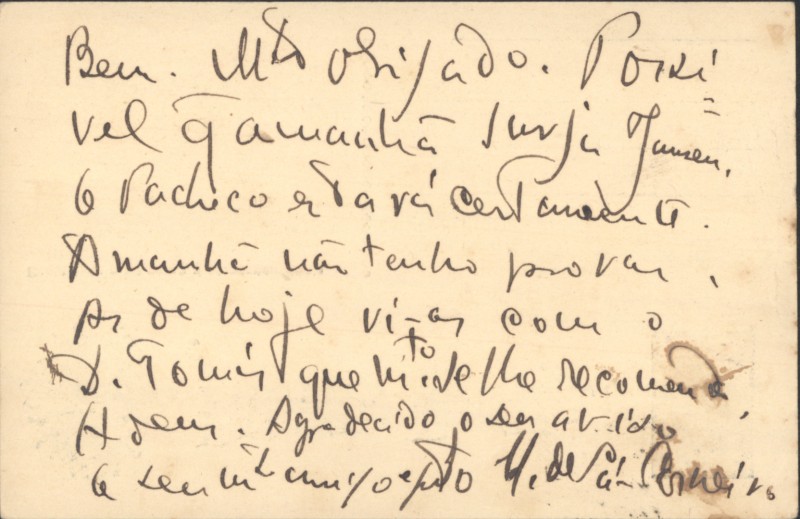 Bem. Mto obrigado. Possi
vel q amanhã surja Jansen,
O Pacheco estará certamente.
Amanhã não tenho provas,
As de hoje vi-as com o
D. Tomás que mto se lhe recomenda,
Adeus. Agradecido o seu aviso
O seu mto amigo e gto M. de Sá-Carneiro